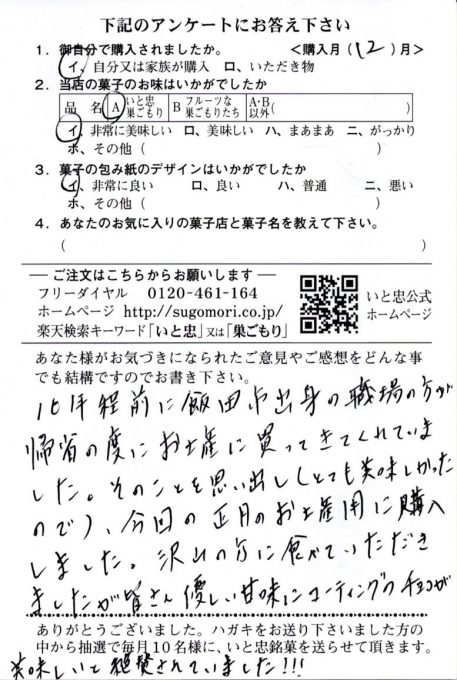 下記のアンケートにお答え下さい
1．御自分で購入されましたか。 ＜購入月（12）月＞
イ、自分又は家族が購入 ロ、いただき物
2．当店の菓子のお味はいかがでしたか
品 名 A いと忠巣ごもり B フルーツな巣ごもりたち A・B以外（ ）
イ、非常に美味しい ロ、美味しい ハ、まあまあ ニ、がっかり
ホ、その他（ ）
3．菓子の包み紙のデザインはいかがでしたか
イ、非常に良い ロ、良い ハ、普通 ニ、悪い
ホ、その他（ ）
4．あなたのお気に入りの菓子店と菓子名を教えて下さい。
（ ）
― ご注文はこちらからお願いします ―
フリーダイヤル 0120-461-164
ホームページ http://sugomori.co.jp/
楽天検索キーワード「いと忠」又は「巣ごもり」
いと忠公式
ホームページ
あなた様がお気づきになられたご意見やご感想をどんな事
でも結構ですのでお書き下さい。
10年程前に飯田市出身の職場の方が
帰省の度にお土産に買ってきてくれていま
した。そのことを思い出し(とても美味しかった
ので)、今回の正月のお土産用に購入
しました。沢山の方に食べていただき
ましたが皆さん優しい甘味にコーティングのチョコが
美味しいと絶賛されていました!!!
ありがとうございました。ハガキをお送り下さいました方の
中から抽選で毎月10名様に、いと忠銘菓を送らせて頂きます。